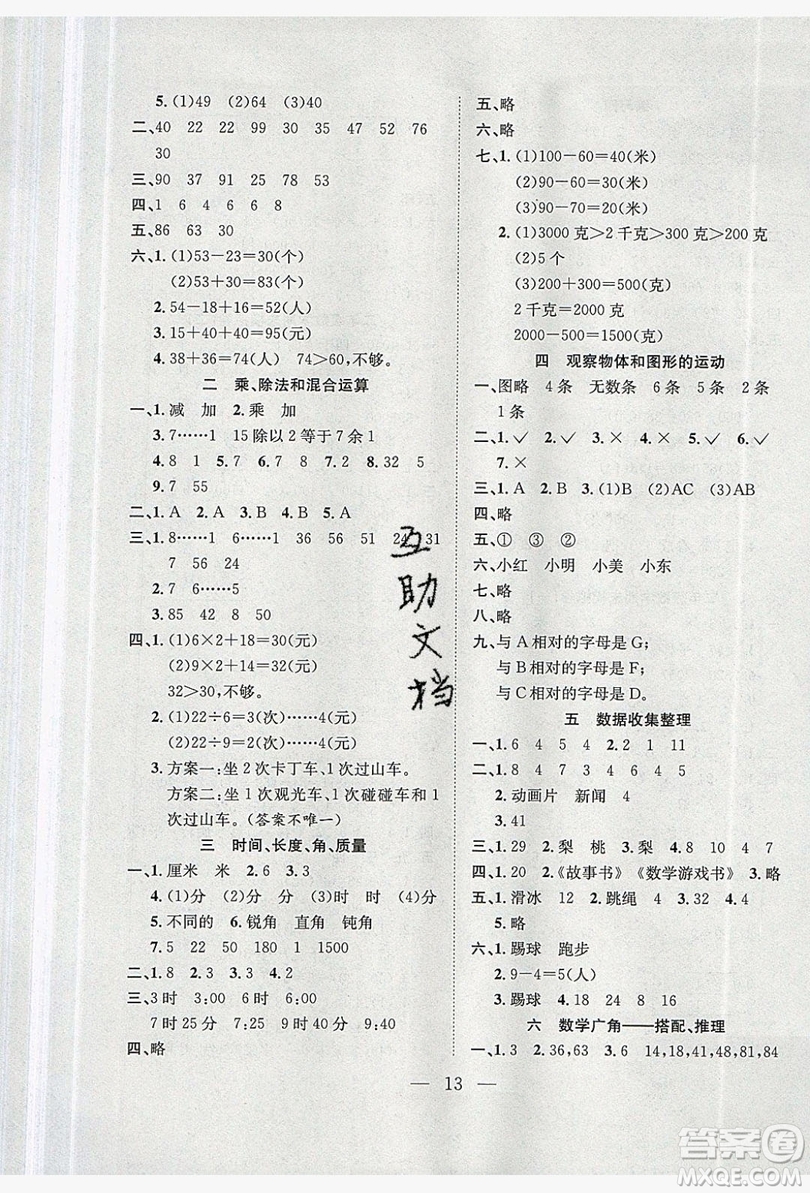 5.(1)49 (2)64 (3)40
二、40 22 22 49 52 76
30
三、90 37 87 90 78 53
四、1 6 4 6 6 8
五、86 63 30
六、1.(1)53－23＝30(个)
(2)53＋30＝83(个)
2.54－18＋16＝52(人)
3.15＋40＋40＝95(元)
4.38＋36＝74(人) 74＞60,不够。
二 乘、除法和混合运算
一、1.减 加 2.乘 加
3.7……1 15除以2等于7余1
4.8 1 5.7 6.8 7.2 8.32 5
9.7 55
二、1.A 2.A 3.B 4.B 5.A
三、1.8……1 36 56 51 24 31
7 56 24
2.7 6……5
3.85 42 8 50
四、1.(1)6×2＋18＝30(元)
(2)9×2＋14＝32(元)
32＞30,不够。
2.(1)22÷6＝3(次)……4(元)
(2)22÷9＝2(次)……4(元)
3.方案一：坐2次卡丁车、1次过山车。
方案二：坐1次观光车、1次碰碰车和1
次过山车。(答案不唯一)
三 时间、长度、角、质量
一、1.厘米 米 2.6 3.3
4.(1)分 分 (2)分 (3)时 时 (4)分
5.不同的 6.锐角 直角 钝角
7.5 22 50 180 60 1500
二、1.2 2.3 3.2 4.3
三、3时 3:00 6时 6:00
7时25分 7:25 9时40分 9:40
四、略
五、略
六、略
七、1.(1)100－60＝40(米)
(2)90－60＝30(米)
(3)90－70＝20(米)
2.(1)3000克＞2千克＞300克＞200克
(2)5个
(3)200＋300＝500(克)
2千克＝2000克
2000－500＝1500(克)
四 观察物体和图形的运动
一、图略 4条 无数条 6条 5条 2条
1条
二、1.✓ 2.✓ 3.× 4.✓ 5.✓ 6.✓
7.×
三、1.A 2.B 3.(1)B (2)AC (3)AB
四、略
五、① ③ ②
六、小红 小明 小美 小东
七、略
八、略
九、与A相对的字母是G；
与B相对的字母是F；
与C相对的字母是D。
五 数据收集整理
一、1.6 4 5 4 2.2 1 11
二、1.5 4 8 4
2.动画片 新闻 4
3.41
三、1.29 2.梨 桃 3.梨 4.8 10 4 7
四、1.20 2.《故事书》《数学游戏书》 3.略
五、1.滑冰 12 2.跳绳 4 3.32 4.9
5.略
六、1.踢球 跑步
2.9－4＝5(人)
3.踢球 4.18 24 8 16
六 数学广角——搭配、推理
一、1.3 2.36,63 3.6 14,18,41,48,81,84
— 13 —
互
助
文
档
答案圈
MXQE.COM